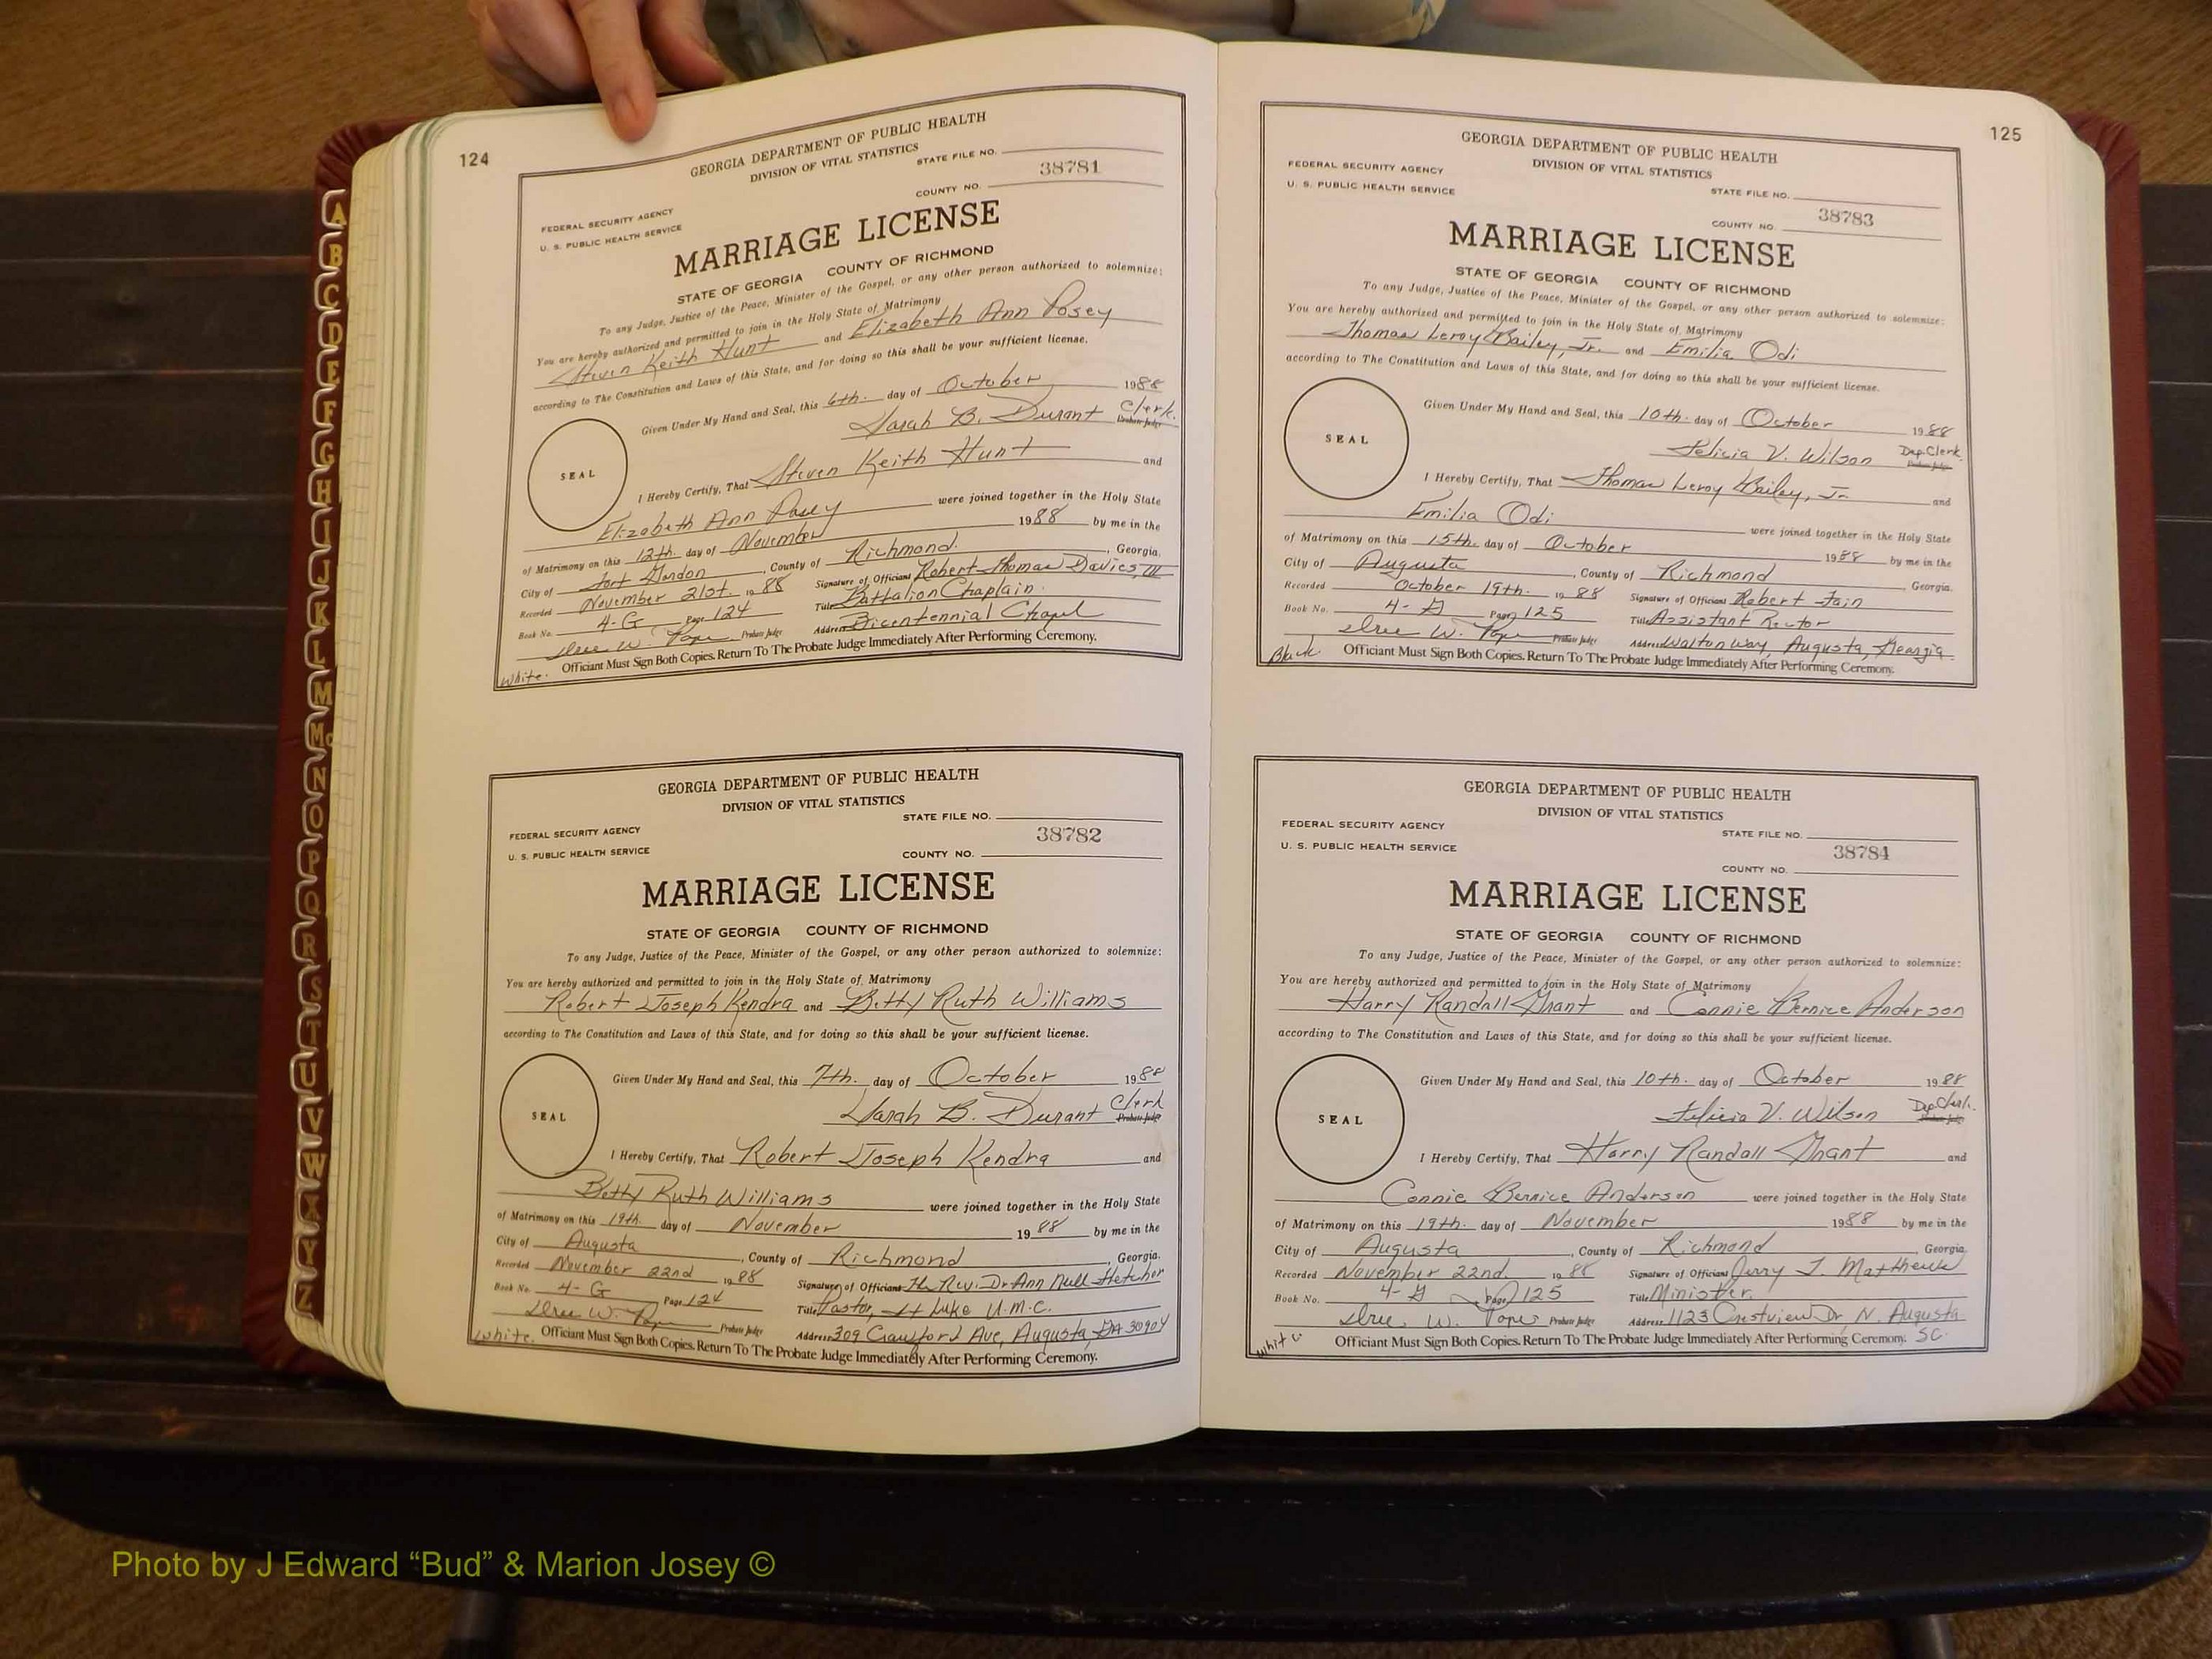 124
GEORGIA DEPARTMENT OF PUBLIC HEALTH
DIVISION OF VITAL STATISTICS
STATE FILE NO.
38781
COUNTY NO.
FEDERAL SECURITY AGENCY
U. S. PUBLIC HEALTH SERVICE
MARRIAGE LICENSE
STATE OF GEORGIA COUNTY OF RICHMOND
To any Judge, Justice of the Peace, Minister of the Gospel, or any other person authorized to solemnize:
You are hereby authorized and permitted to join in the Holy State of Matrimony
Steven Keith Hunt and Elizabeth Ann Posey
according to The Constitution and Laws of this State, and for doing so this shall be your sufficient license.
Given Under My Hand and Seal, this 6th. day of October 1988
Sarah B. Durant Clerk. Probate Judge
SEAL
I Hereby Certify, That Steven Keith Hunt and
Elizabeth Ann Posey were joined together in the Holy State
of Matrimony on this 12th. day of November 1988 by me in the
City of Fort Gordon, County of Richmond, Georgia.
Recorded November 21st. 1988 Signature of Officiant Robert Thomas Davies, III
Book No. 4-G Page 124 Title Battalion Chaplain
Probate Judge Address Bicentennial Chapel
Officiant Must Sign Both Copies. Return To The Probate Judge Immediately After Performing Ceremony.
White.
GEORGIA DEPARTMENT OF PUBLIC HEALTH
DIVISION OF VITAL STATISTICS
STATE FILE NO.
38782
COUNTY NO.
FEDERAL SECURITY AGENCY
U. S. PUBLIC HEALTH SERVICE
MARRIAGE LICENSE
STATE OF GEORGIA COUNTY OF RICHMOND
To any Judge, Justice of the Peace, Minister of the Gospel, or any other person authorized to solemnize:
You are hereby authorized and permitted to join in the Holy State of Matrimony
Robert Joseph Kendra and Betty Ruth Williams
according to The Constitution and Laws of this State, and for doing so this shall be your sufficient license.
Given Under My Hand and Seal, this 7th. day of October 1988
Sarah B. Durant Clerk Probate Judge
SEAL
I Hereby Certify, That Robert Joseph Kendra and
Betty Ruth Williams were joined together in the Holy State
of Matrimony on this 19th. day of November 1988 by me in the
City of Augusta, County of Richmond, Georgia.
Recorded November 22nd 1988 Signature of Officiant The Rev. Dr Ann Null Fletcher
Book No. 4-G Page 124 Title Pastor, St Luke U.M.C.
Probate Judge Address 309 Crawford Ave, Augusta, GA 30904
Officiant Must Sign Both Copies. Return To The Probate Judge Immediately After Performing Ceremony.
White.
125
GEORGIA DEPARTMENT OF PUBLIC HEALTH
DIVISION OF VITAL STATISTICS
FEDERAL SECURITY AGENCY
U. S. PUBLIC HEALTH SERVICE
STATE FILE NO.
38783
COUNTY NO.
MARRIAGE LICENSE
STATE OF GEORGIA COUNTY OF RICHMOND
To any Judge, Justice of the Peace, Minister of the Gospel, or any other person authorized to solemnize:
You are hereby authorized and permitted to join in the Holy State of Matrimony
Thomas Leroy Bailey, Jr. and Emilia Odi
according to The Constitution and Laws of this State, and for doing so this shall be your sufficient license.
Given Under My Hand and Seal, this 10th. day of October 1988
Felicia V. Wilson Dep. Clerk. Probate Judge
SEAL
I Hereby Certify, That Thomas Leroy Bailey, Jr and
Emilia Odi were joined together in the Holy State
of Matrimony on this 15th. day of October 1988 by me in the
City of Augusta, County of Richmond Georgia.
Recorded October 19th. 1988 Signature of Officiant Robert Fain
Book No. 4-G Page 125 Title Assistant Rector
Probate Judge Address Walton Way, Augusta, Georgia
Officiant Must Sign Both Copies. Return To The Probate Judge Immediately After Performing Ceremony.
Black.
GEORGIA DEPARTMENT OF PUBLIC HEALTH
DIVISION OF VITAL STATISTICS
FEDERAL SECURITY AGENCY
U. S. PUBLIC HEALTH SERVICE
STATE FILE NO.
38784
COUNTY NO.
MARRIAGE LICENSE
STATE OF GEORGIA COUNTY OF RICHMOND
To any Judge, Justice of the Peace, Minister of the Gospel, or any other person authorized to solemnize:
You are hereby authorized and permitted to join in the Holy State of Matrimony
Harry Randall Grant and Connie Bernice Anderson
according to The Constitution and Laws of this State, and for doing so this shall be your sufficient license.
Given Under My Hand and Seal, this 10th. day of October 1988
Felicia V. Wilson Dep. Clerk. Probate Judge
SEAL
I Hereby Certify, That Harry Randall Grant and
Connie Bernice Anderson were joined together in the Holy State
of Matrimony on this 19th. day of November 1988 by me in the
City of Augusta, County of Richmond Georgia
Recorded November 22nd. 1988 Signature of Officiant Jerry L. Matthews
Book No. 4-G Page 125 Title Minister.
Probate Judge Address 1123 Crestview Dr, N. Augusta
Officiant Must Sign Both Copies. Return To The Probate Judge Immediately After Performing Ceremony. SC.
White
A
B
C
D
E
F
G
H
I
J
K
L
M
Mc
N
O
P
Q
R
S
T
U
V
W
X
Y
Z
Photo by J Edward “Bud” & Marion Josey ©